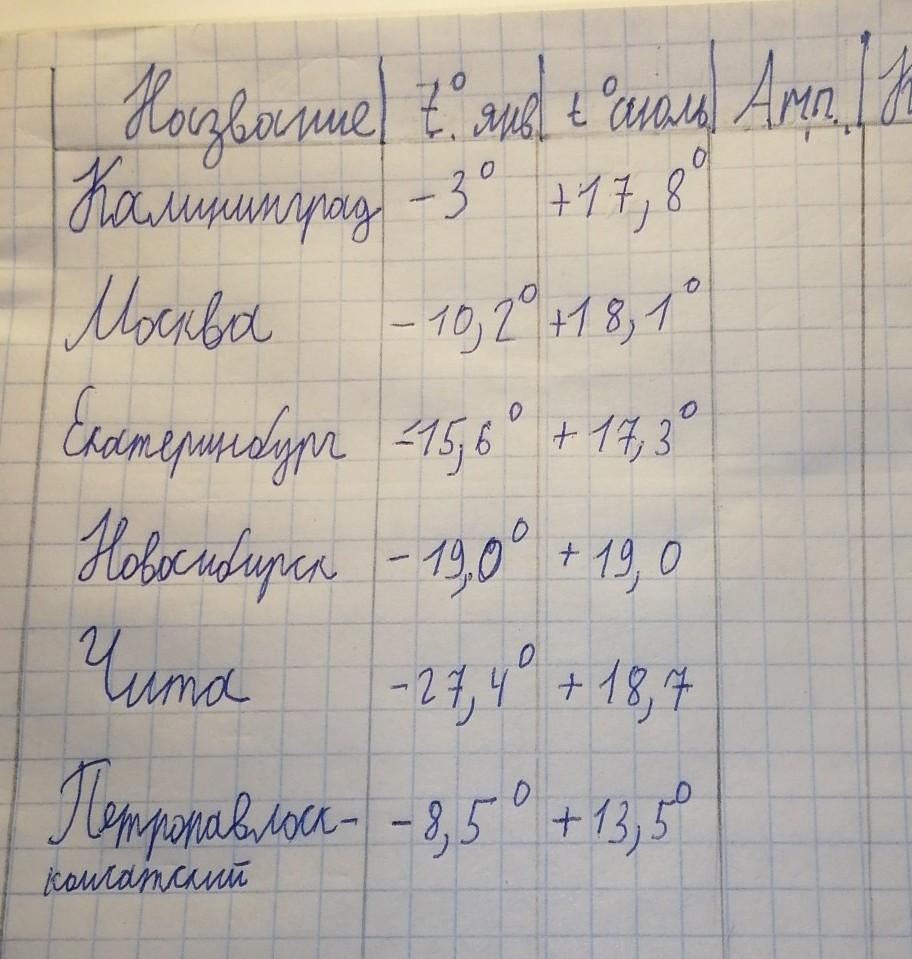 Название t.° янв t° июль Амп.
Калининград -3° +17,8°
Москва -10,2° +18,1°
Екатеринбург -15,6° +17,3°
Новосибирск -19,0° +19,0
Чита -27,4° +18,7
Петропавлоск- -8,5° +13,5°